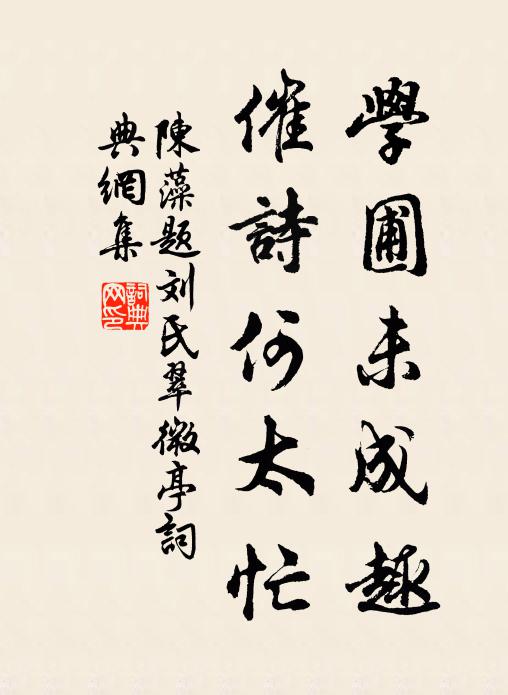 學圃未成趣
催詩何太忙
陳藻題刘氏翠微亭詞
典網集
詞典网印